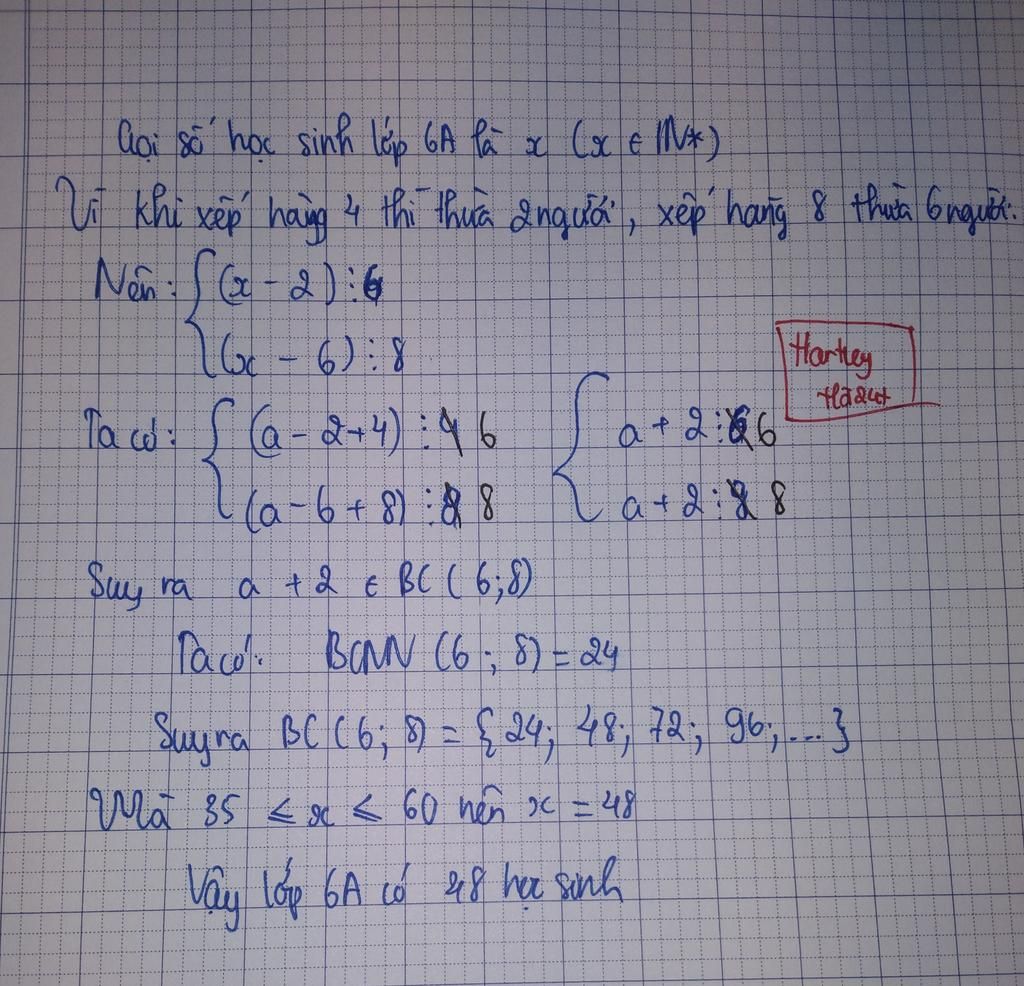 Gọi số học sinh lớp 6A là x (x ∈ IN*)
Vì khi xếp hàng 4 thì thừa 2 người, xếp hàng 8 thừa 6 người.
Nên: { (x - 2) ⋮ 6
(x - 6) ⋮ 8
Ta có: { (a - 2 + 4) ⋮ 6 { a + 2 ⋮ 6
(a - 6 + 8) ⋮ 8 a + 2 ⋮ 8
Suy ra a + 2 ∈ BC (6; 8)
Ta có: BCNN (6; 8) = 24
Suy ra BC (6; 8) = {24; 48; 72; 96; ...}
Mà 35 ≤ x ≤ 60 nên x = 48
Vậy lớp 6A có 48 học sinh